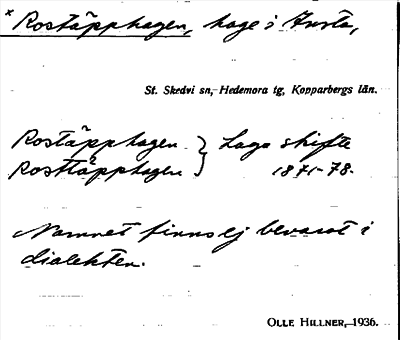 * Rostäpphagen, hage i Husta,
St. Skedvi sn, Hedemora tg, Kopparbergs län.
Rostäpphagen } Laga skifte
Rosttäpphagen } 1871-78.
Namnet finns ej bevarat i
dialekten.
OLLE HILLNER, 1936.